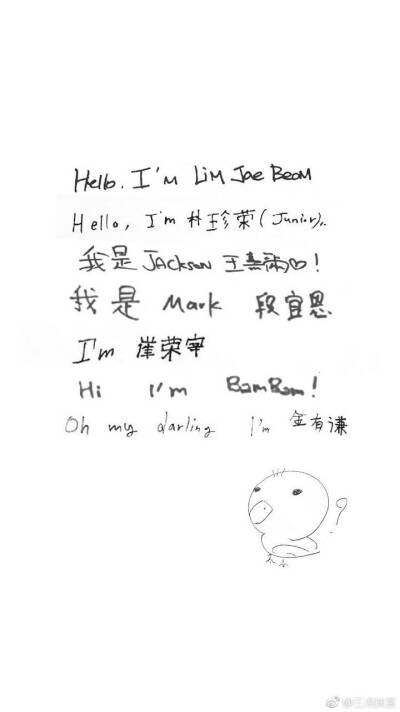 Hello. I'm Lim Jae Beom
Hello, I'm 朴珍荣(Junior).
我是 JACKson 王嘉尔♡!
我是 Mark 段宜恩
I'm 崔荣宰
Hi I'm BamBam!
Oh my darling I'm 金有谦
?